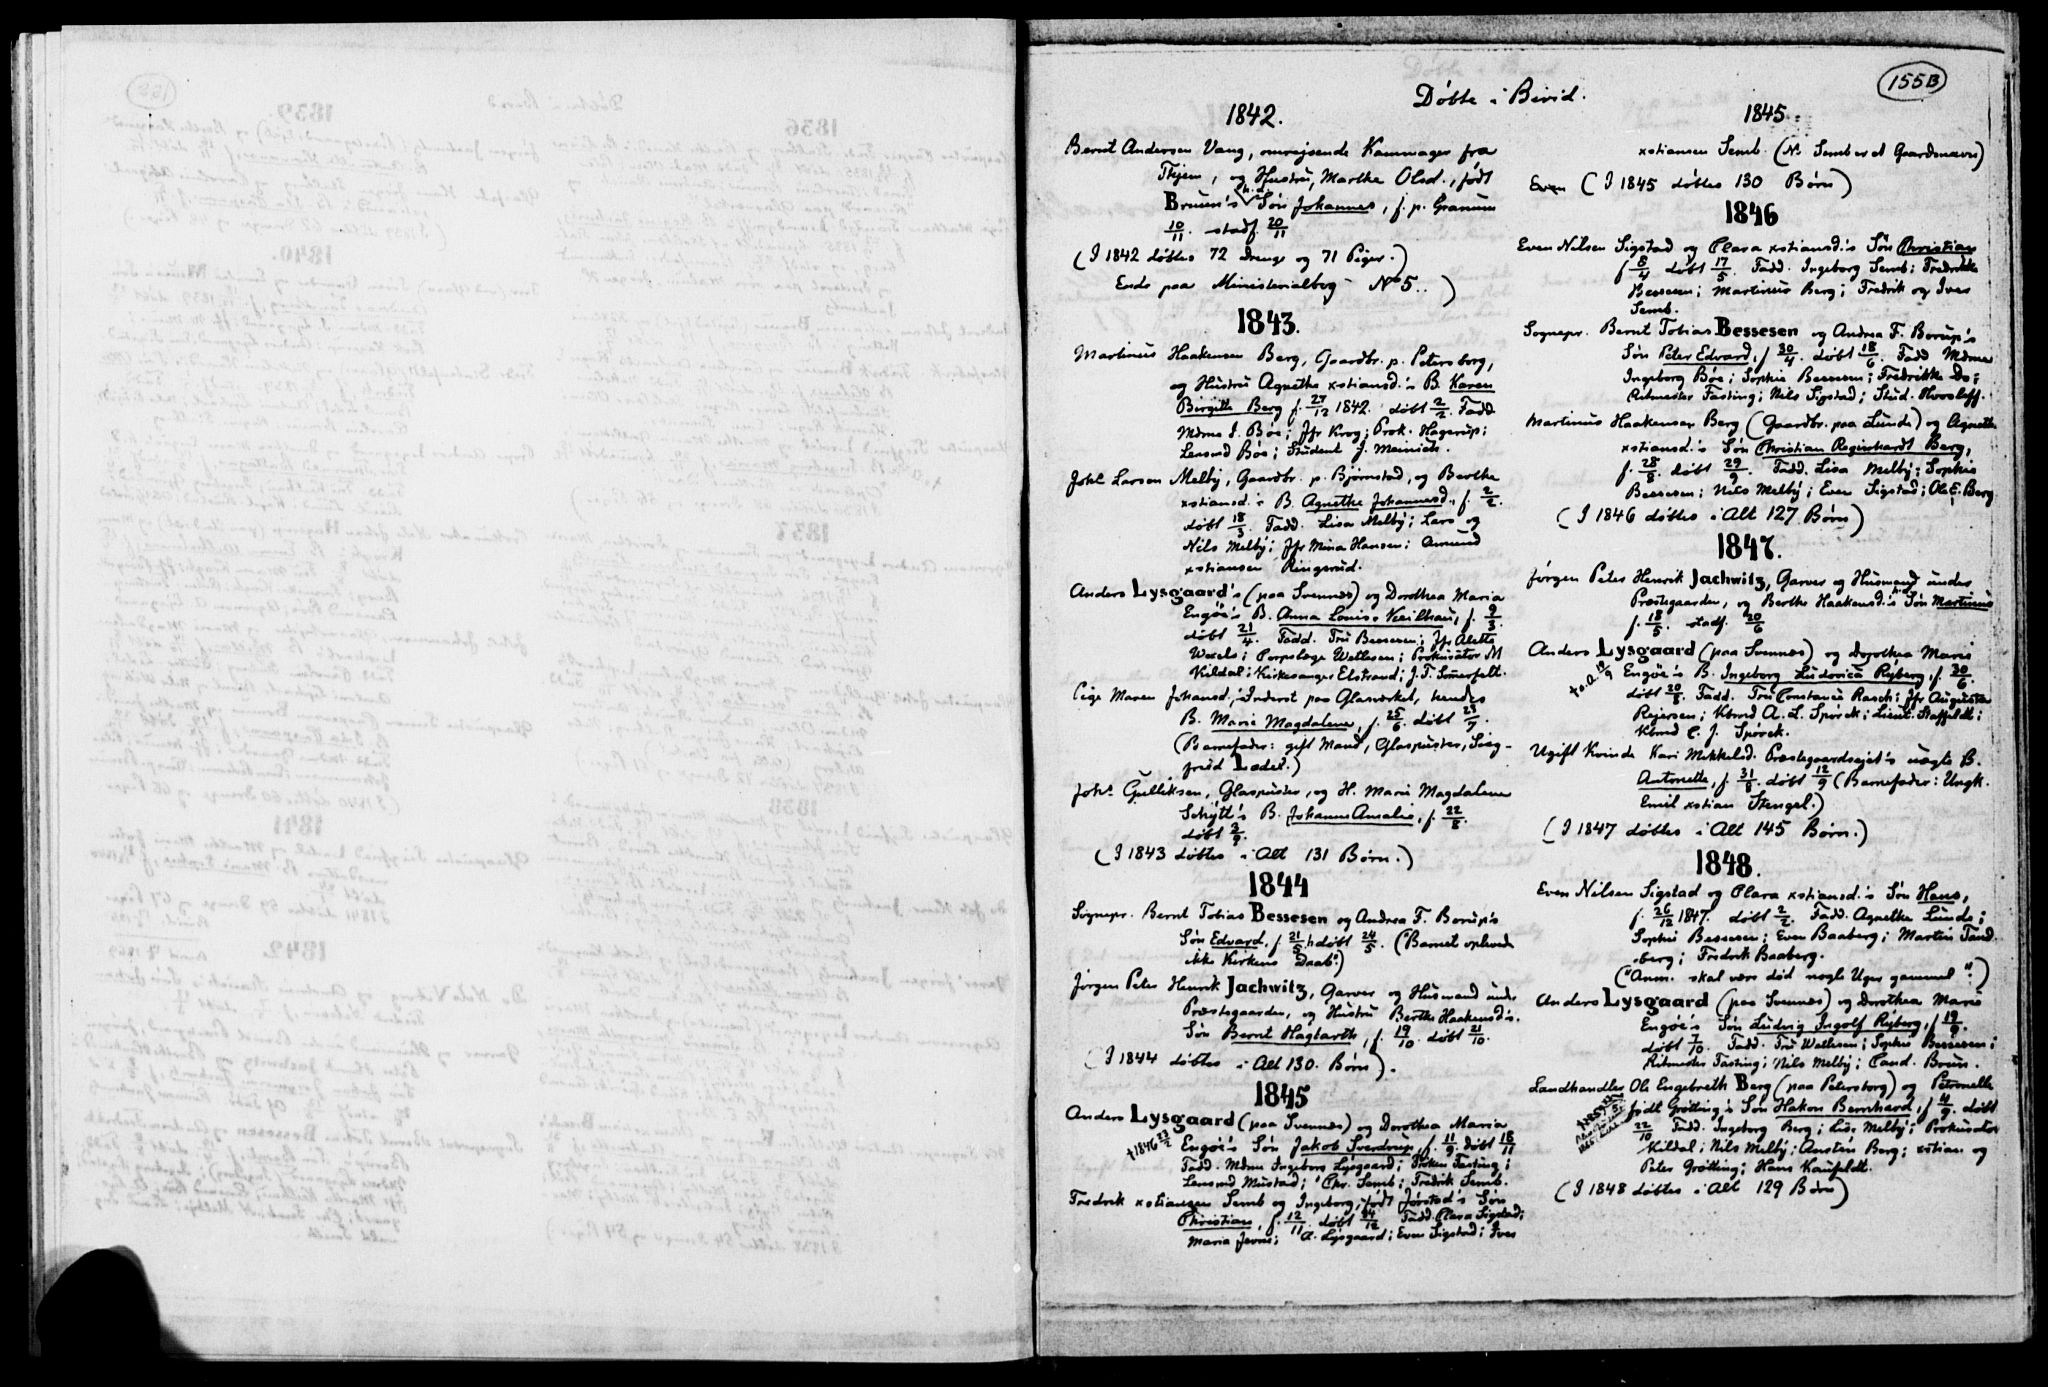 155B
Døbte i Birid.
1842.
Bernt Andersen Vang, omrejsende Kammager fra
Thjem, og Hustru, Marthe Olsd., født
Bruun's Søn Johannes, f. p. Granum
10/11. stadf. 20/11
(I 1842 døbtes 72 Drenge og 71 Piger.)
Ende paa Ministerialbog No 5..)
1843.
Martinius Haakensen Berg, Gaardbr. p. Petersborg,
og Hustru Agnethe xstiansd.'s B. Karen
Birgitte Berg f. 27/12 1842. døbt 2/2. Fadd.
Mdme I. Bøe; Jfr Krog; Prok. Hagerup;
Lensmd Bøe; Student J. Meinich.
Johs Larsen Melby, Gaardbr. p. Bjørnstad, og Berthe
xstiansd.'s B. Agnethe Johannesd., f. 2/2.
døbt 18/3. Fadd. Lisa Melby; Lars og
Nils Melby; Jfr Mina Hansen; Amund
xstiansen Ringsrud.
Anders Lysgaard's (paa Svennes) og Dorothea Maria
Engøe's B. Anna Louise Keilhau, f. 9/3.
døbt 21/4. Fadd. Fru Bessesen; Jfr Alette
Wexels; Corpslæge Wetlesen; Prokurator M
Kildal; Kirkesanger Elstrand; J. T. Sømerfelt.
Pige Maren Johansd., Inderst paa Glasværket, hendes
B. Marie Magdalene, f. 25/6. døbt 23/7.
(Barnefader: gift Mand, Glaspuster, Sieg-
fried Ladel.)
Johs Gulliksen, Glaspuster, og H. Marie Magdalene
Schytt's B. Johanne Amalie, f. 22/8.
døbt 3/9.
(I 1843 døbtes i Alt 131 Børn.)
1844
Sognepr. Bernt Tobias Bessesen og Andrea F. Borup's
Søn Edvard, f. 21/5 hdøbt 24/5. ("Barnet oplevede
ikke Kirkens Daab".)
Jørgen Peter Henrik Jachwitz, Garver og Husmand under
Præstegaarden, og Hustru Berthe Haakensd's.
Søn Bernt Hagbarth, f. 19/10. døbt 21/10.
(I 1844 døbtes i Alt 130. Børn).
1845
Anders Lysgaard (paa Svennes) og Dorothea Maria
†1846 23/2 Engøe's Søn Jakob Sverdrup, f. 11/9. døbt 18/11
Fadd. Mdme Ingeborg Lysgaard; Frøken Fasting;
Lensmd Mustad; Chr. Semb; Fredrik Semb.
Fredrik xstiansen Semb og Ingeborg, født Jørstad's Søn
Christian, f. 12/11. døbt 14/12 Fadd. Clara Sigstad;
Maria Jevne; A. Lysgaard; Even Sigstad; Iver
1845.
xstiansen Semb. (N. Semb er et Gaardsnavn)
Even (I 1845 døbtes 130 Børn)
1846
Even Nilsen Sigstad og Clara xstiansd.'s Søn Christian
f. 8/4 døbt 17/5. Fadd. Ingeborg Semb; Fredrikke
Bessesen; Martinus Berg; Fredrik og Iver
Semb.
Sognepr. Bernt Tobias Bessesen og Andrea F. Borup's
Søn Peter Edvard, f. 30/4. døbt 18/6. Fadd Mdme
Ingeborg Bøe; Sophie Bessesen; Fredrikke Do;
Ritmester Fasting; Nils Sigstad; Stud.
Martinus Haakensen Berg (Gaardbr. paa Lunde) og Agnethe
xstiansd.'s Søn Christian Reginhardt Berg,
f. 28/8. døbt 29/9. Fadd. Lisa Melby; Sophie
Bessesen; Nils Melby; Even Sigstad; Ole E. Berg
(I 1846 døbtes i Alt 127 Børn)
1847.
Jørgen Peter Henrik Jachwitz, Garver og Husmand under
Præstegaarden, og Berthe Haakensd.'s Søn Martinus
f. 18/5. stadf. 20/6
Anders Lysgaard (paa Svennes) og Dorothea Maria
† s.A. Engøe's B. Ingeborg Ludovica Ryberg, f. 30/6.
døbt 20/8. Fadd. Fru Constance Rasch; Jfr Augusta
Rejersen; Kbmd A. L. Spørck; Lieut. Staffeldt;
Kbmd C. J. Spørck.
Ugift Kvinde Kari Mikkelsd. Præstegaardsejet's uægte B.
Antonette, f. 31/8. døbt 12/9 (Barnefader: Ungk.
Emil xstian Stengel.)
(I 1847 døbtes i Alt 145 Børn.)
1848.
Even Nilsen Sigstad og Clara xstiansd.'s Søn Hans,
f. 26/12 1847. døbt 2/2. Fadd. Agnethe Lunde;
Sophie Bessesen; Even Baaberg; Martin Sand-
berg; Fredrik Baaberg.
("Anm. skal være død nogle Uger gammel".)
Anders Lysgaard (paa Svennes) og Dorothea Maria
Engøe's Søn Ludvig Ingolf Ryberg, f. 19/9.
døbt 7/10. Fadd. Fru Wetlesen; Sophie Bessesen;
Ritmester Fasting; Nils Melby; Cand. Bruun.
Landhandler Ole Engebreth Berg (paa Petersborg) og Petronelle
født Grøtting's Søn Hakon Bernhard, f. 4/9. døbt
22/10 Fadd. Ingeborg Berg; Lise Melby; Prokurator
Kildal; Nils Melby; Austen Berg; xstian og
Peter Grøtting; Hans Kaufeldt.
(I 1848 døbtes i Alt 129 Børn)